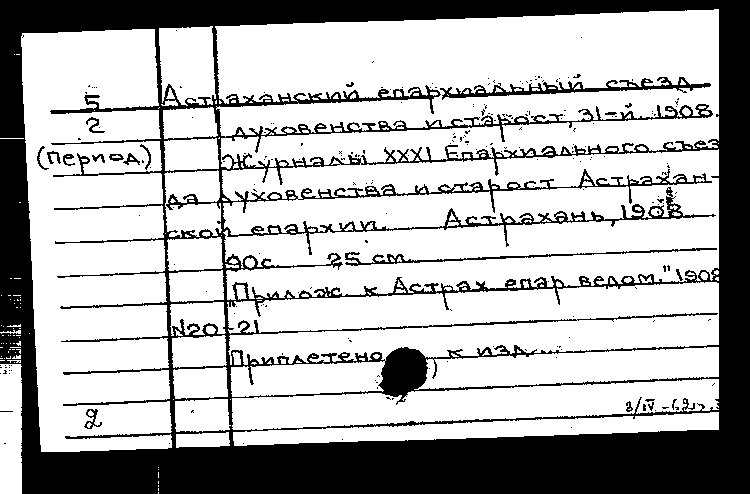 5 Астраханский епархиальный съезд
2 духовенства и старост, 31-й. 1908.
(период.) Журналы XXXI Епархиального съез
да духовенства и старост Астрахан-
ской епархии. Астрахань, 1908.
90с. 25 см.
"Прилож. к Астрах. епар. ведом." 1908
N20-21
Приплетено к изд...
2